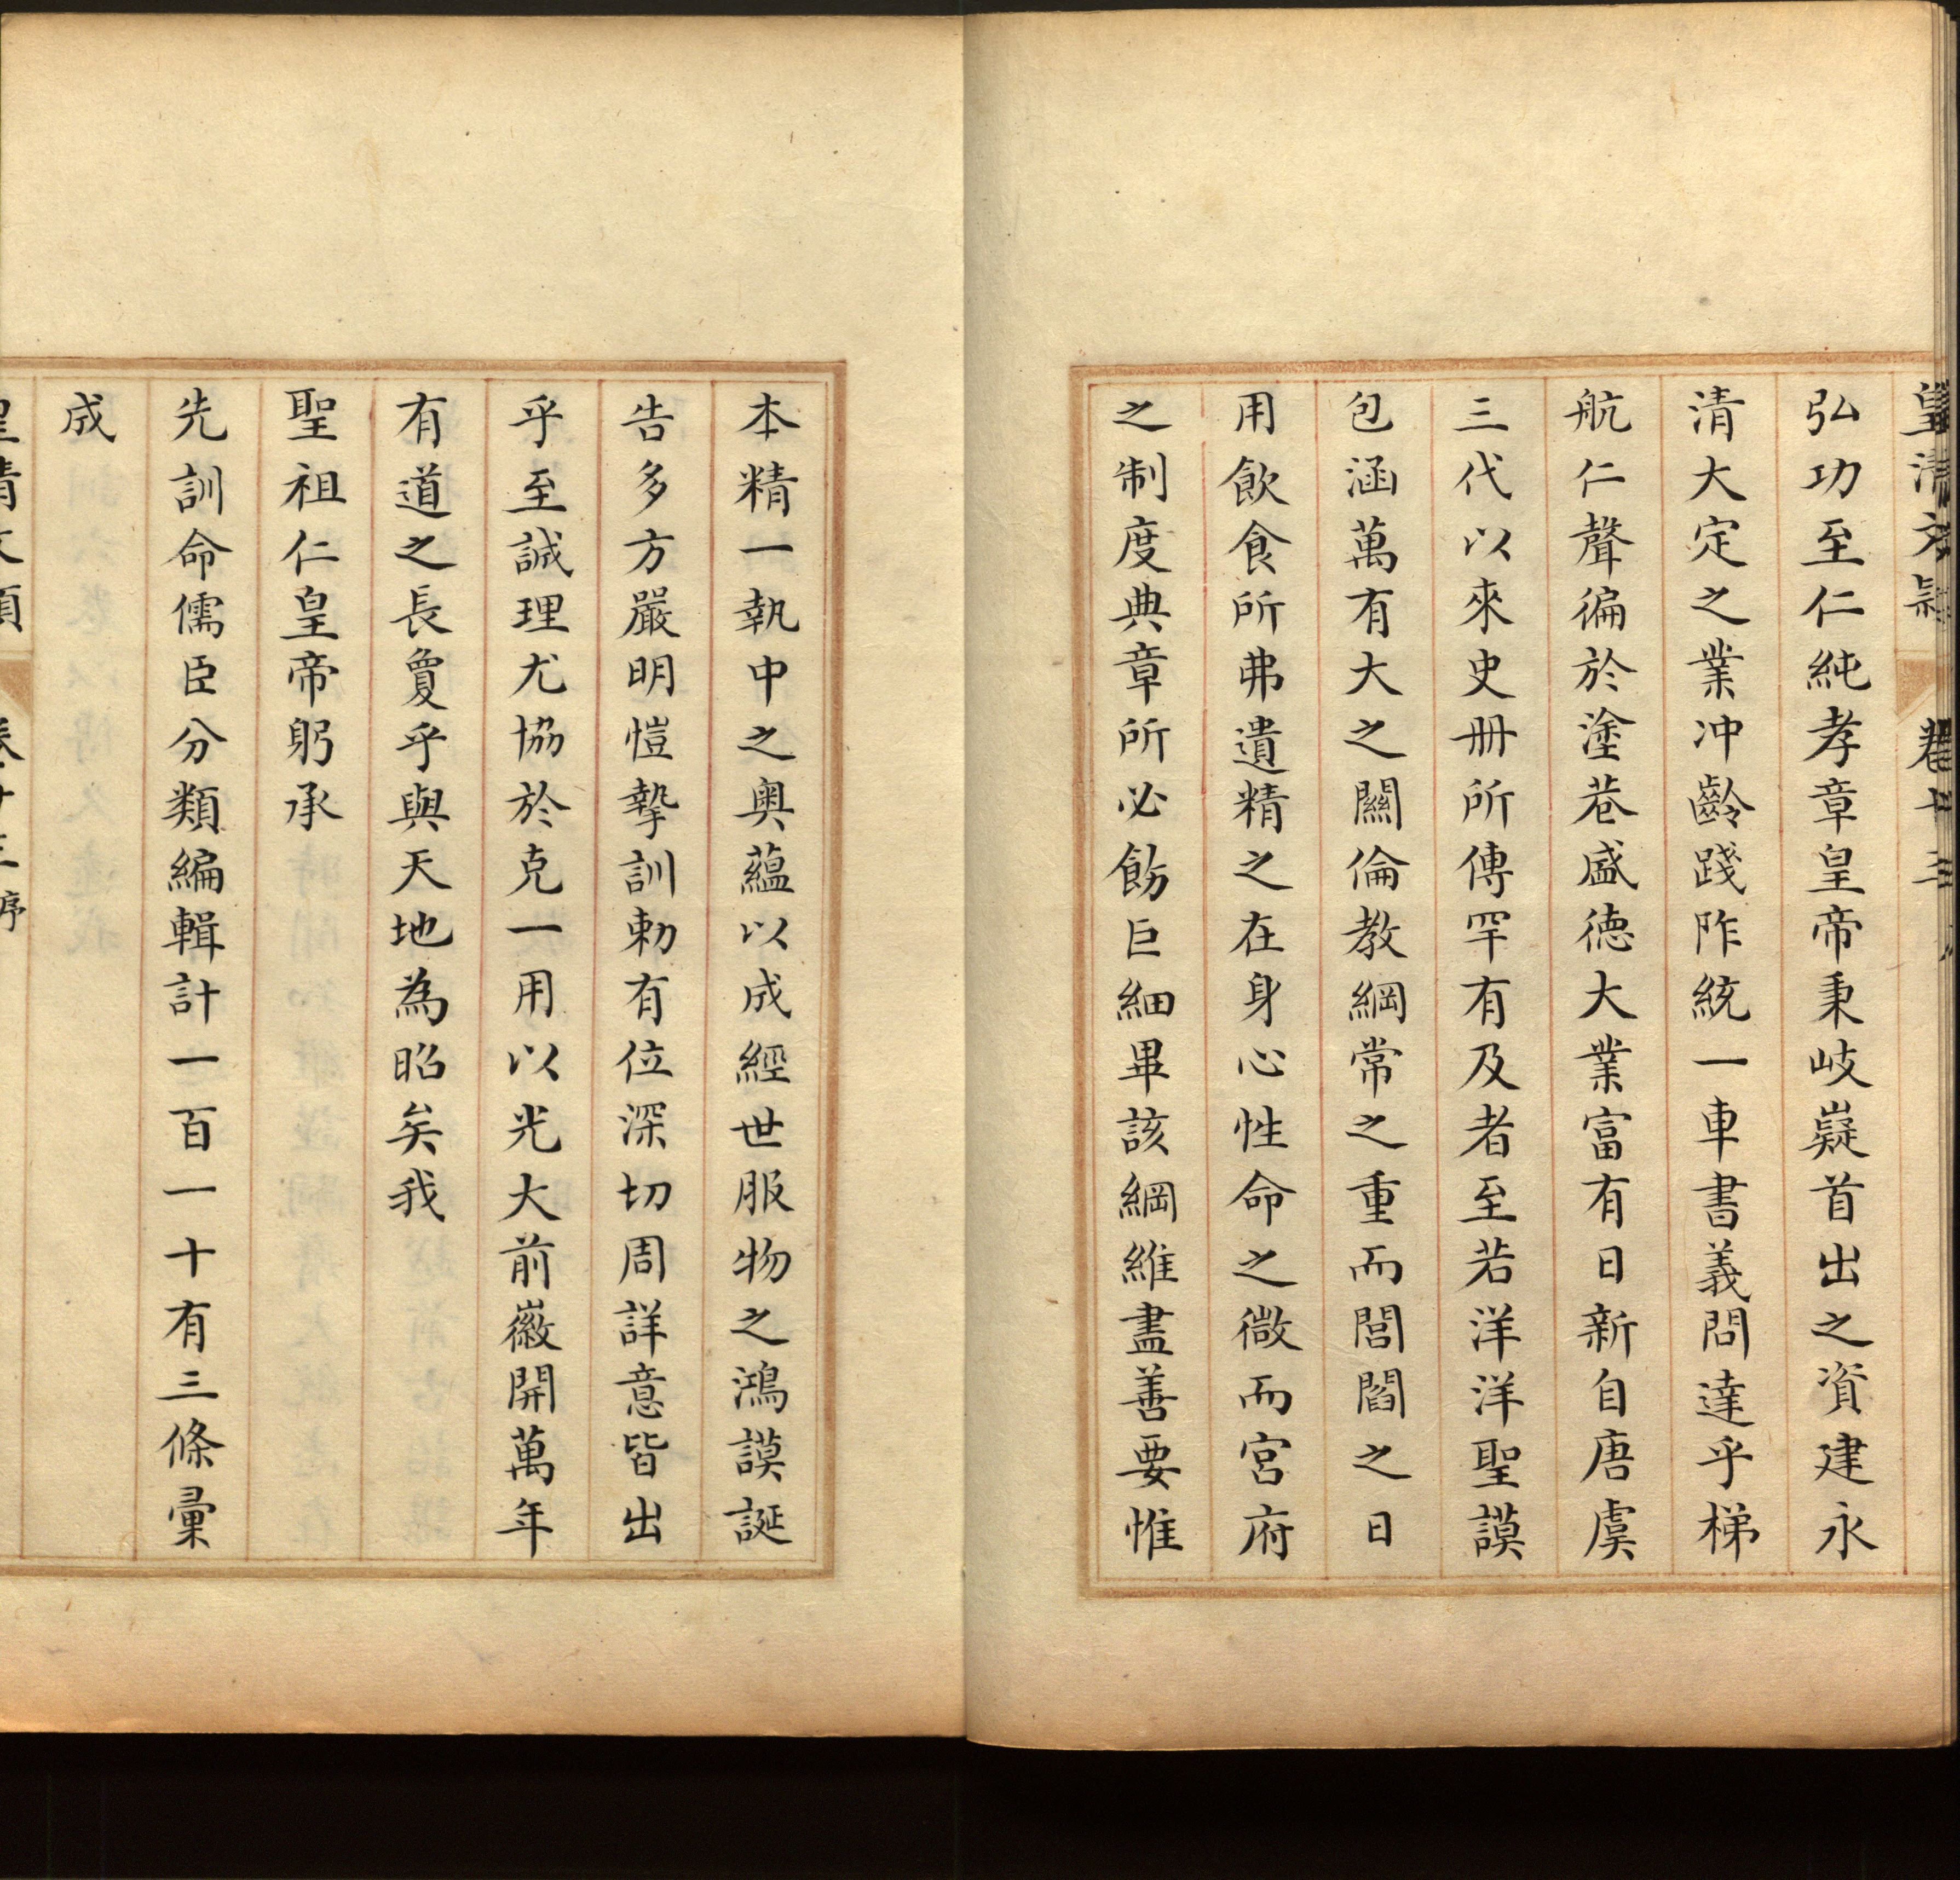 皇清文穎 卷十三
弘功至仁純孝章皇帝秉岐嶷首出之資建永
清大定之業冲齡踐阼統一車書義問達乎梯
航仁聲徧於塗巷盛德大業富有日新自唐虞
三代以來史冊所傳罕有及者至若洋洋聖謨
包涵萬有大之關倫教綱常之重而閭閻之日
用飲食所弗遺精之在身心性命之微而宮府
之制度典章所必飭巨細畢該綱維盡善要惟
本精一執中之奧蘊以成經世服物之鴻謨誕
告多方嚴明愷摯訓勅有位深切周詳意皆出
乎至誠理尤協於克一用以光大前徽開萬年
有道之長敻乎與天地為昭矣我
聖祖仁皇帝躬承
先訓命儒臣分類編輯計一百一十有三條彙
成
皇清文穎 卷十三 序